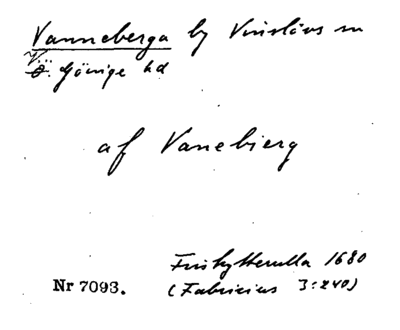 Vanneberga by Vinslövs sn
V. Göinge hd
af Vanebierg
Friskytterulla 1680
Nr 7093. (Fabricius 3:240)